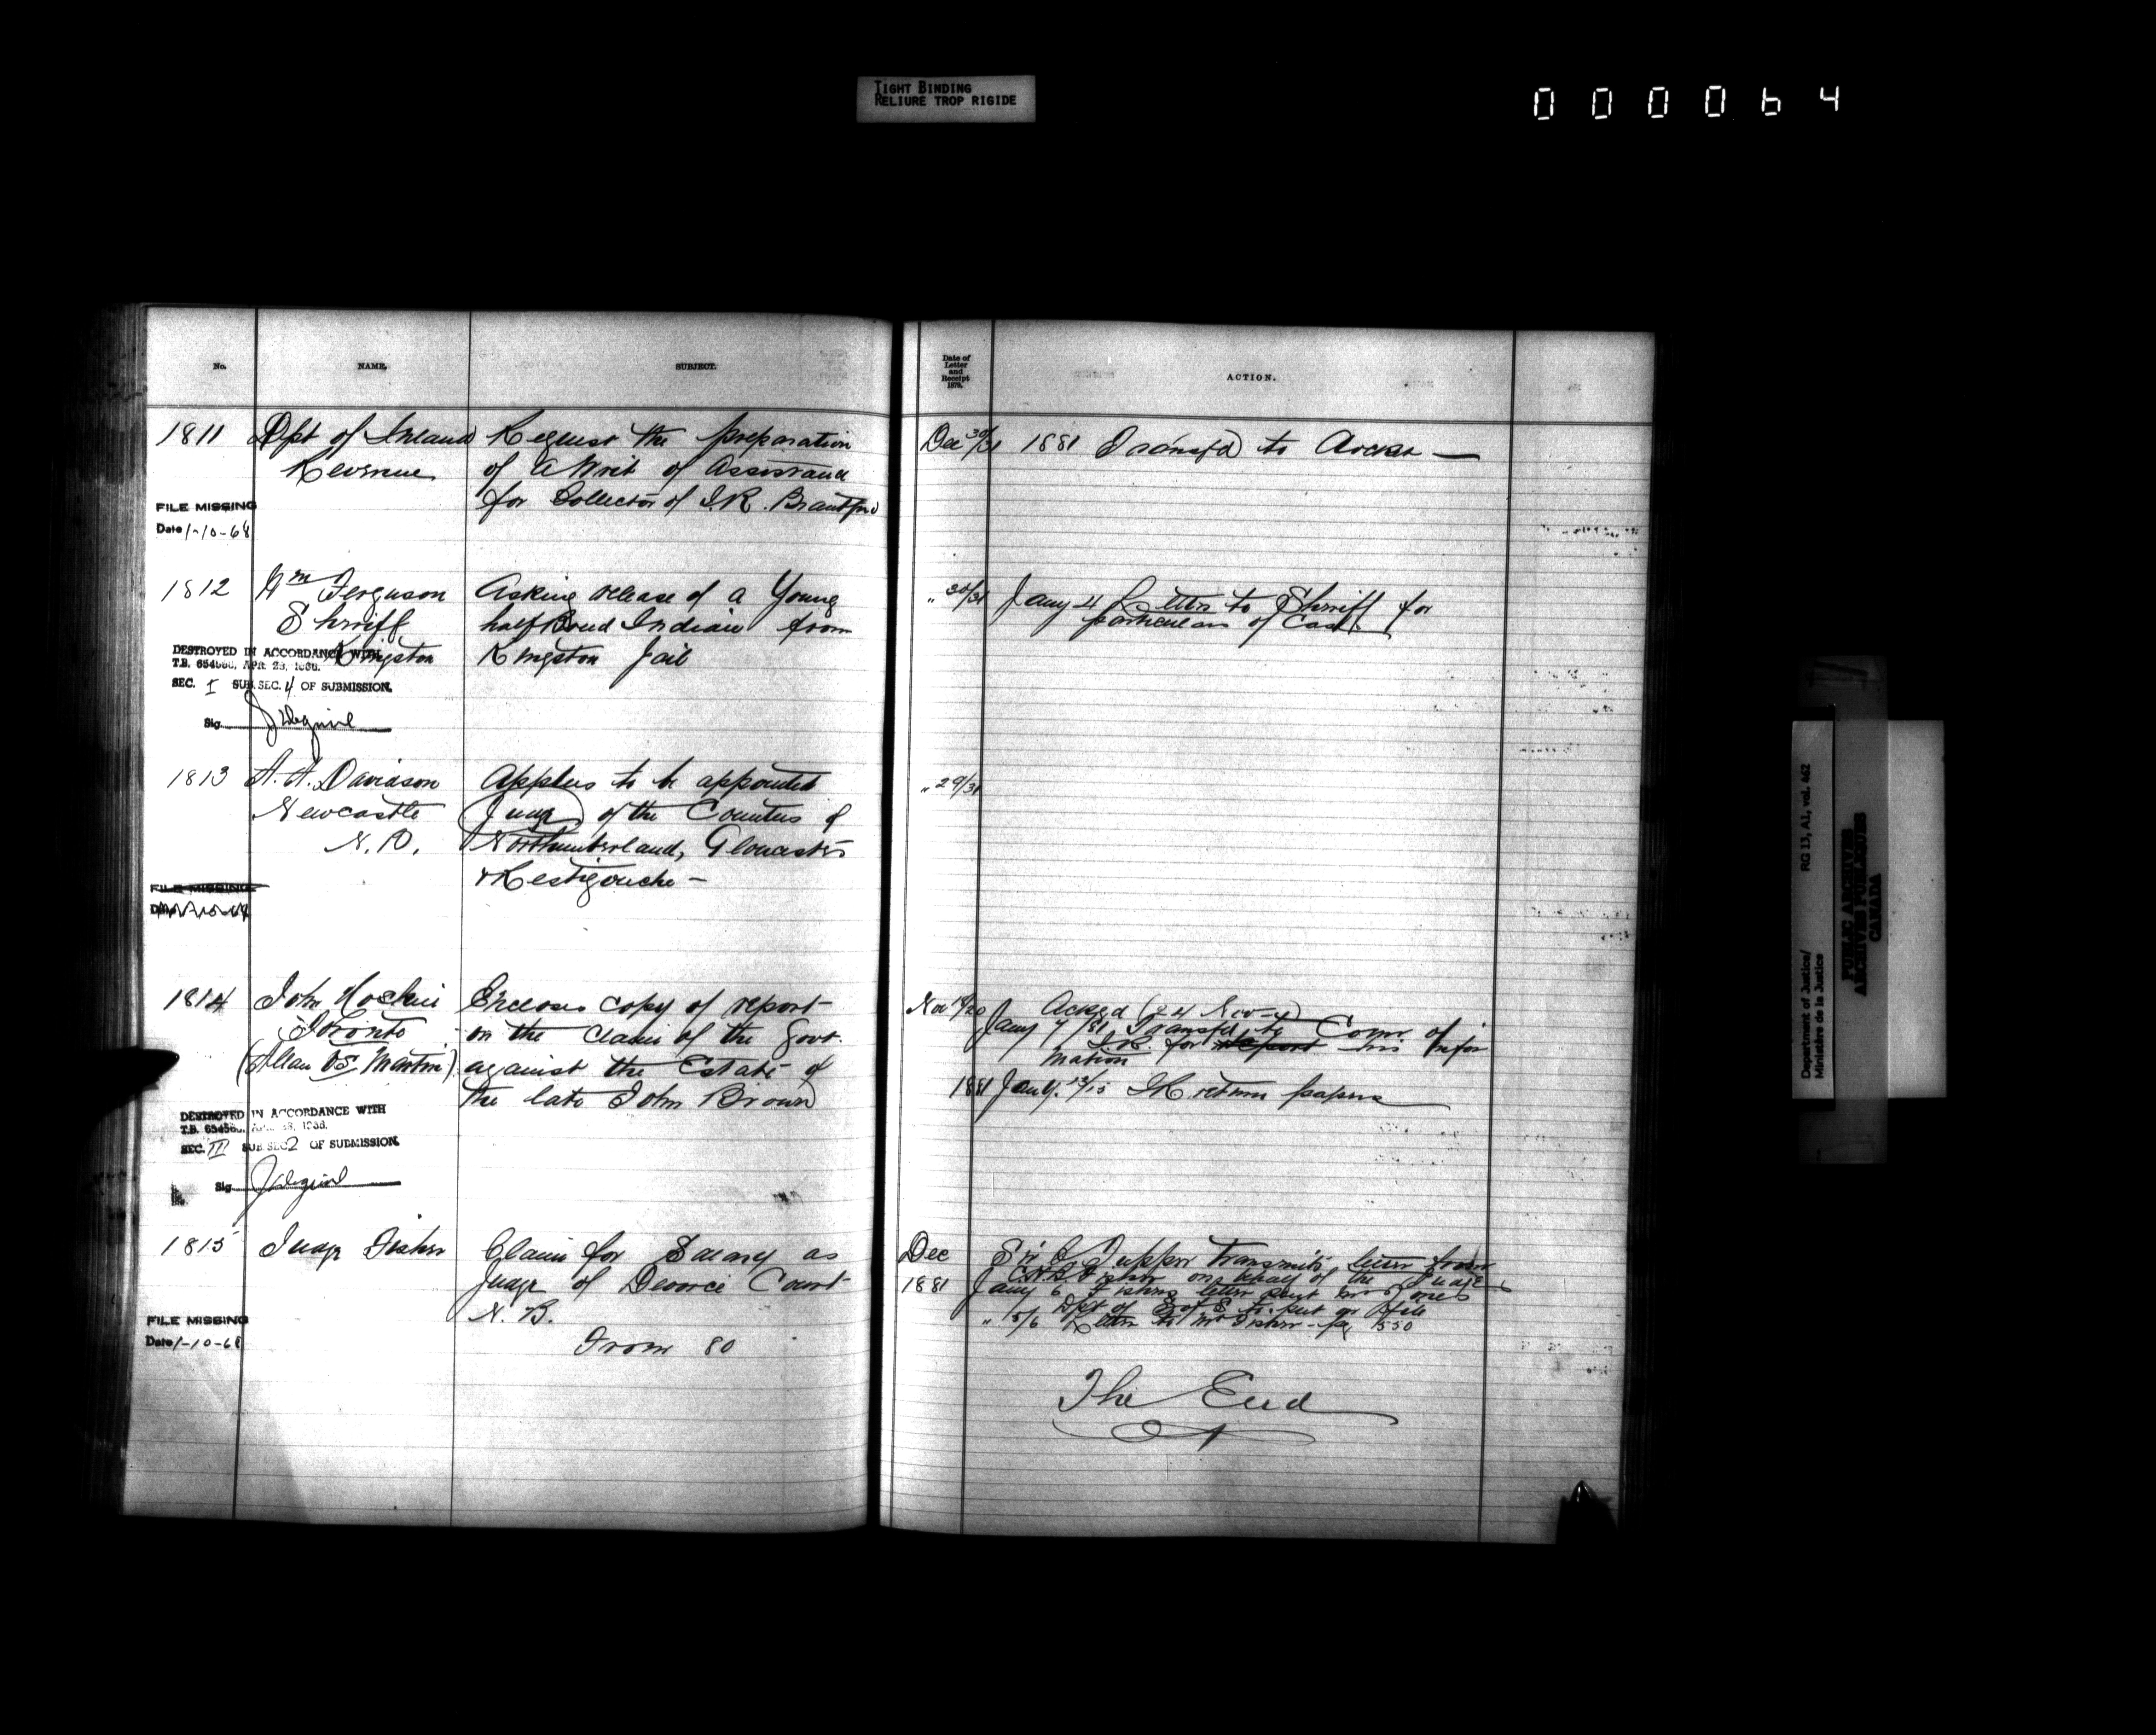 TIGHT BINDING
RELIURE TROP RIGIDE
000064
No.
NAME.
SUBJECT.
Date of
Letter
and
Receipt
1879.
ACTION.
1811
Dpt of Inland
Revenue
Request the preparation
of a Writ of Assistance
for Collector of I.R. Brantford
Dec 30/31
1881 Transfd to
FILE MISSING
Date 1-10-68
1812
Wm Ferguson
Sheriff
Kingston
Asking release of a Young
half Breed Indian from
Kingston Jail
" 30/31
Jany 4 Letter to Sheriff for
particulars of Case
DESTROYED IN ACCORDANCE WITH
T.B. 654560, APR. 28, 1966.
SEC. I SUB. SEC. 4 OF SUBMISSION.
Sig.
1813
A. A. Davidson
Newcastle
N. B.
Applies to be appointed
Judge of the Counties of
Northumberland, Gloucester
& Restigouche -
" 29/31
FILE MISSING
1814
John Hoskin
Toronto
(Allan vs Martin)
Encloses copy of report
on the claim of the Govt.
against the Estate of
the late John Brown
Nov 19/20
Acked (24 Nov)
Jany 7/81 Transfd to Comr of
I.R. for report his infor
mation
1881 Jany. 13/15 IR return papers
DESTROYED IN ACCORDANCE WITH
T.B. 654560, APR. 28, 1966.
SEC. III SUB SEC 2 OF SUBMISSION.
Sig.
1815
Judge Fisher
Claim for Salary as
Judge of Divorce Court
N. B.
From 80
Dec
1881
Sir C Tupper transmits letter from
Fisher on behalf of the Judge
Jany 6 Fishers letter sent Mr Jones
Dpt of S of S to put on file
" 15/6 Letter to Mr Fisher - pg 550
FILE MISSING
Date 1-10-68
The End
Department of Justice/
Ministère de la Justice
RG 13, A1, vol. 462
PUBLIC ARCHIVES
ARCHIVES PUBLIQUES
CANADA